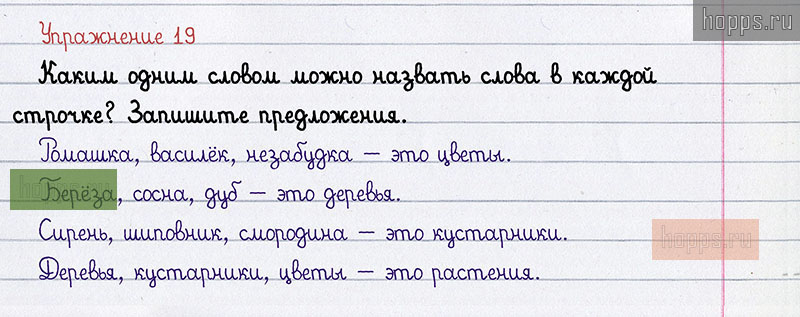 hopps.ru
Упражнение 19
Каким одним словом можно назвать слова в каждой
строчке? Запишите предложения.
Ромашка, василёк, незабудка — это цветы.
Берёза, сосна, дуб — это деревья.
Сирень, шиповник, смородина — это кустарники.
hopps.ru
Деревья, кустарники, цветы — это растения.